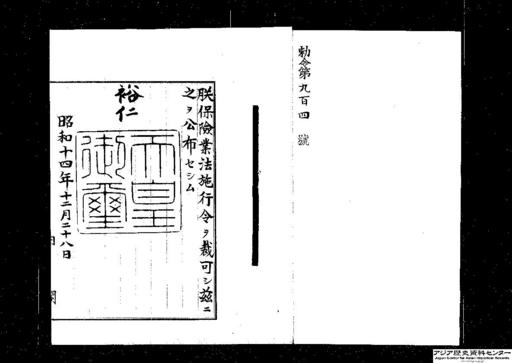 勅令第九百四號
朕保險業法施行令ヲ裁可シ茲ニ
之ヲ公布セシム
裕仁
天皇
御璽
昭和十四年十二月二十八日
アジア歴史資料センター
Japan Center for Asian Historical Records